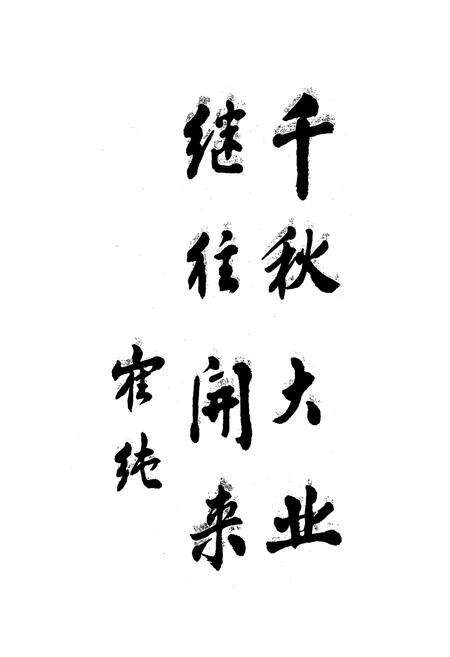 千秋大业
继往開来
纯